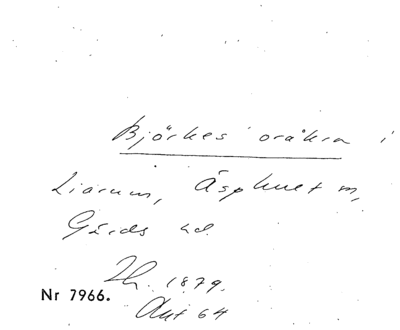 Björkes oråkra i
Liarum, Äsphuet m,
Gärds hd.
Th. 1879.
Nr 7966.
Akt 64